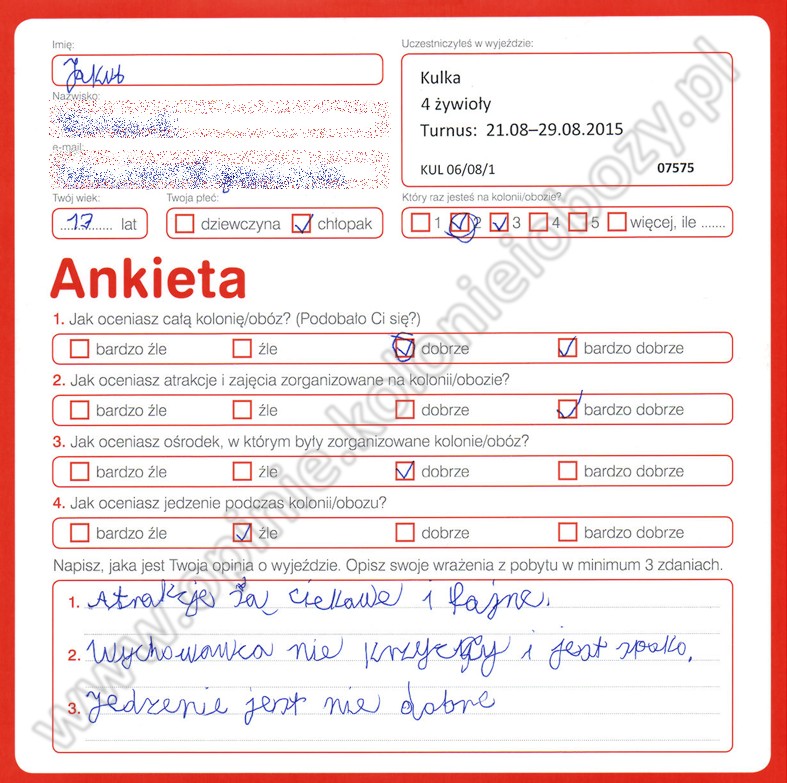 Imię:
Jakub
Nazwisko:
e-mail:
Uczestniczyłeś w wyjeździe:
Kulka
4 żywioły
Turnus: 21.08–29.08.2015
KUL 06/08/1 07575
Twój wiek:
Twoja płeć:
Który raz jesteś na kolonii/obozie?
..17.. lat
dziewczyna chłopak
1 2 3 4 5 więcej, ile .......
Ankieta
1. Jak oceniasz całą kolonię/obóz? (Podobało Ci się?)
bardzo źle źle dobrze bardzo dobrze
2. Jak oceniasz atrakcje i zajęcia zorganizowane na kolonii/obozie?
bardzo źle źle dobrze bardzo dobrze
3. Jak oceniasz ośrodek, w którym były zorganizowane kolonie/obóz?
bardzo źle źle dobrze bardzo dobrze
4. Jak oceniasz jedzenie podczas kolonii/obozu?
bardzo źle źle dobrze bardzo dobrze
Napisz, jaka jest Twoja opinia o wyjeździe. Opisz swoje wrażenia z pobytu w minimum 3 zdaniach.
1. Atrakcje są ciekawe i fajne.
2. Wychowawca nie krzyczy i jest spoko.
3. Jedzenie jest nie dobre
www.opinie.kolonieiobozy.pl